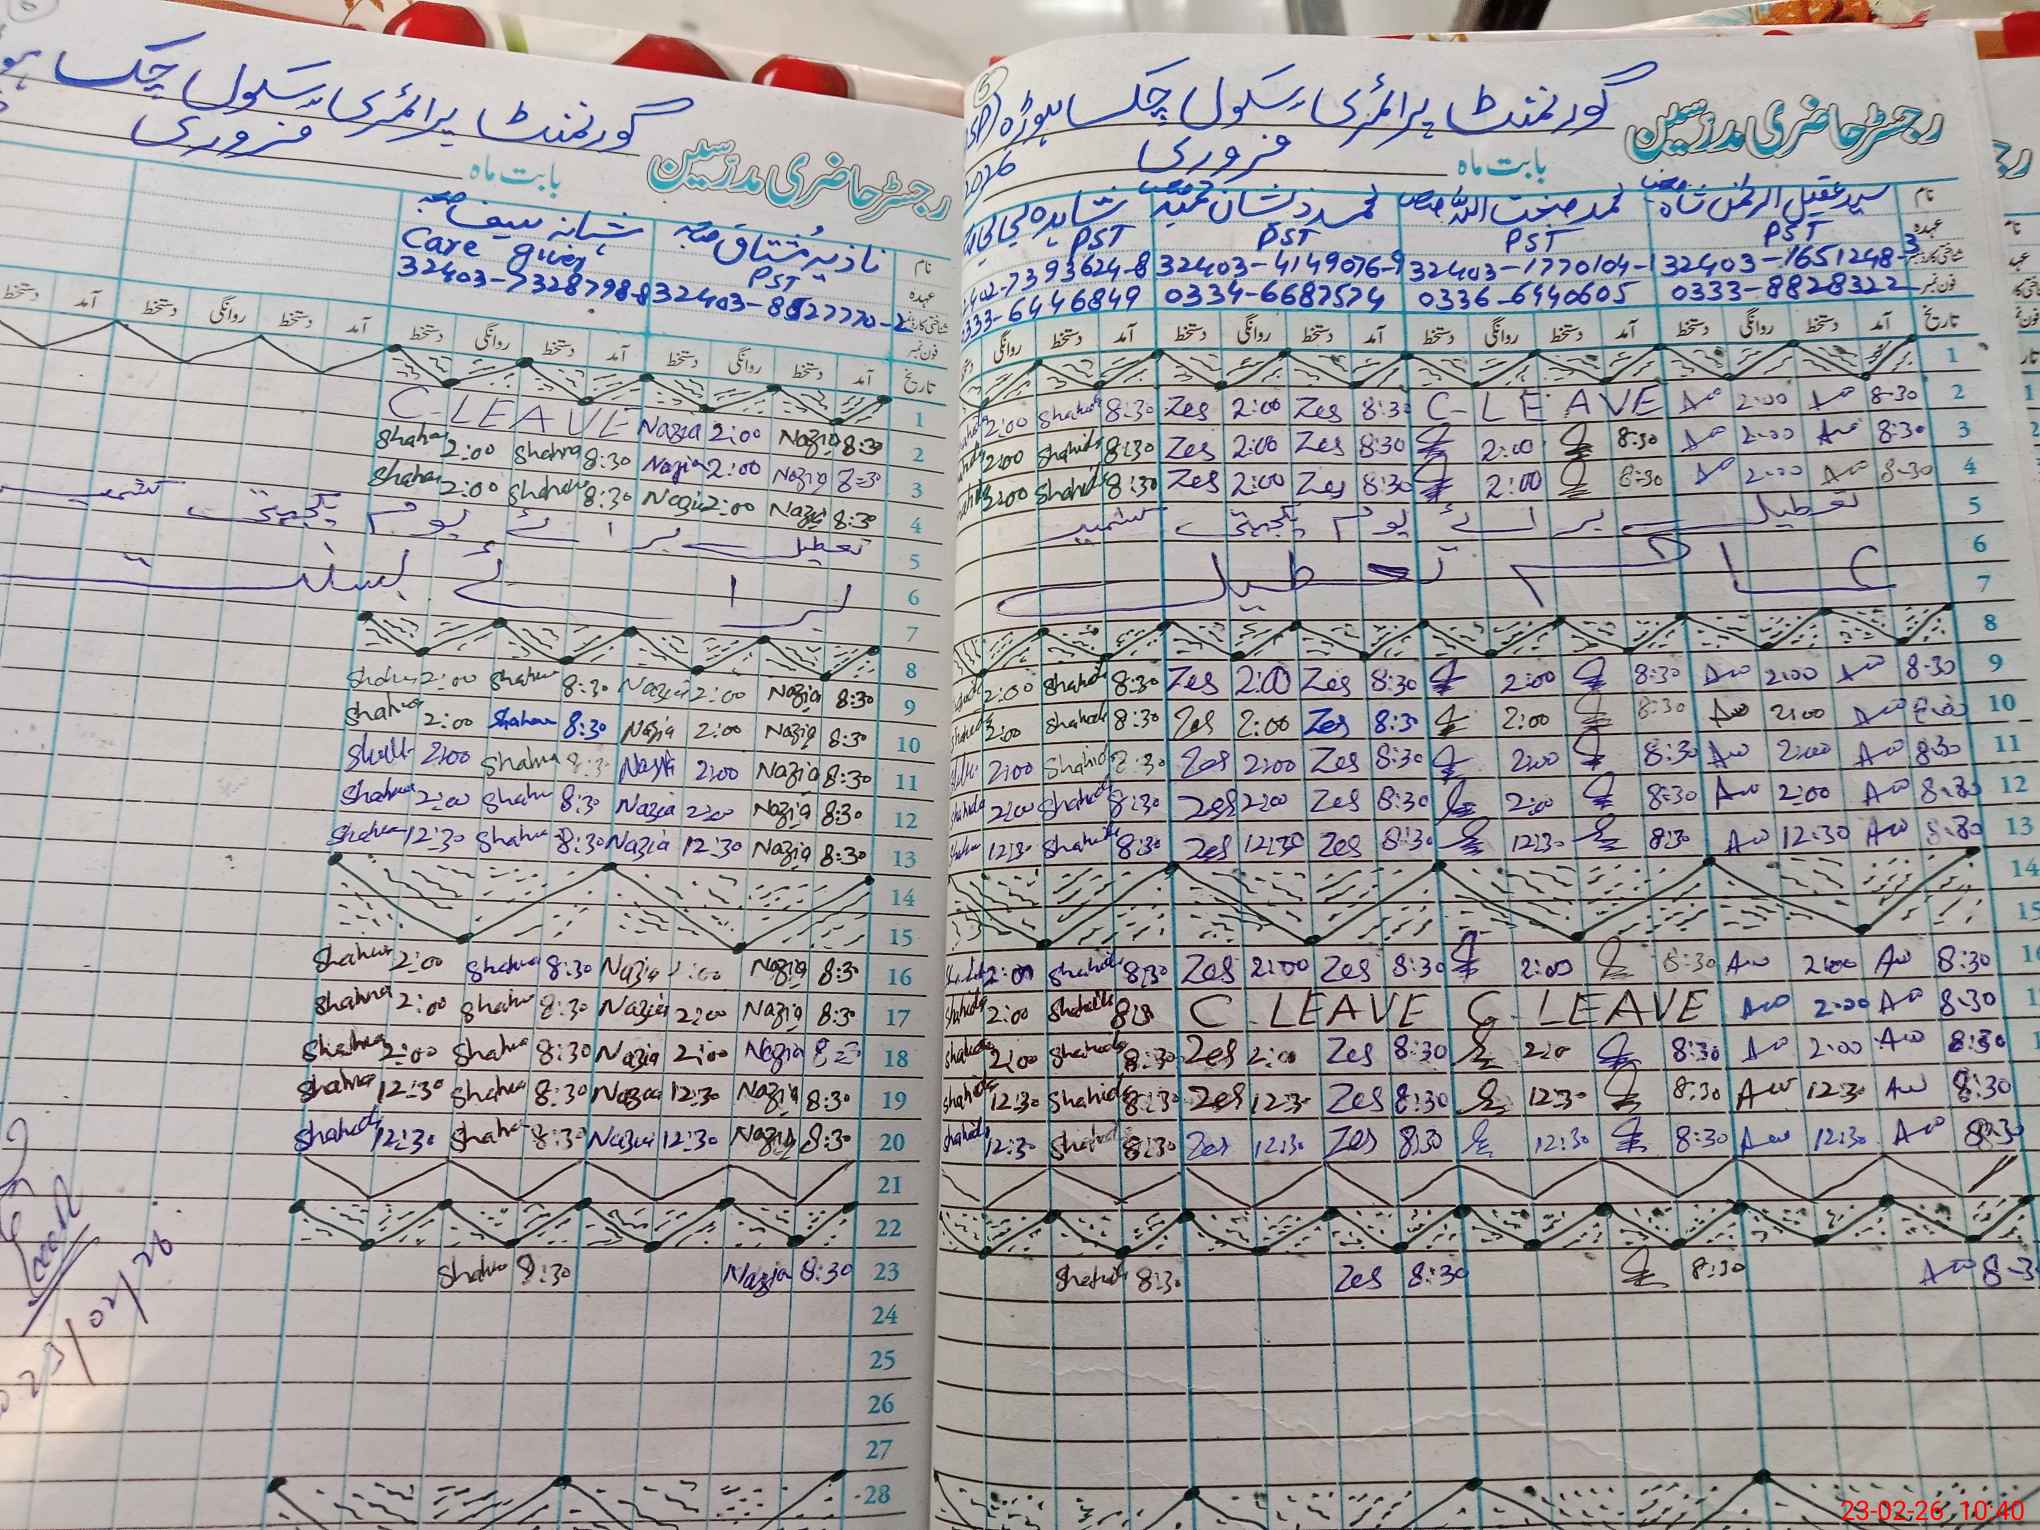 رجسٹر حاضری مدرسین
گورنمنٹ پرائمری سکول چک ہوڑہ
بابت ماہ فروری 2026
نام سید عقیل الرحمٰن شاہ صاحب محمد صفت اللہ صاحب محمد ذیشان حمید صاحب شاہدہ بی بی
عہدہ PST PST PST PST
شناختی کارڈ نمبر 32403-1651248-3 32403-1770104-1 32403-4149076-9 32402-7393624-8
فون نمبر 0333-8828322 0336-6440605 0334-6687574 0333-6446849
تاریخ آمد دستخط روانگی دستخط آمد دستخط روانگی دستخط آمد دستخط روانگی دستخط آمد دستخط روانگی
1
2 8:30 Aw 2:00 Aw C-LEAVE 8:30 Zes 2:00 Zes 8:30 Shahida 2:00
3 8:30 Aw 2:00 Aw 8:30 2:00 8:30 Zes 2:00 Zes 8:30 Shahida 2:00
4 8:30 Aw 2:00 Aw 8:30 2:00 8:30 Zes 2:00 Zes 8:30 Shahida 2:00
5 تعطیل برائے یوم یکجہتی کشمیر
6
7 عام تعطیل
8
9 8:30 Aw 2:00 Aw 8:30 2:00 8:30 Zes 2:00 Zes 8:30 Shahida 2:00
10 Aw 2:00 Aw 8:30 2:00 8:30 Zes 2:00 Zes 8:30 Shahida 2:00
11 8:30 Aw 2:00 Aw 8:30 2:00 8:30 Zes 2:00 Zes 8:30 Shahida 2:00
12 8:30 Aw 2:00 Aw 8:30 2:00 8:30 Zes 2:00 Zes 8:30 Shahida 2:00
13 8:30 Aw 12:30 Aw 8:30 12:30 8:30 Zes 12:30 Zes 8:30 Shahida 12:30
14
15
16 8:30 Aw 2:00 Aw 8:30 2:00 8:30 Zes 2:00 Zes 8:30 Shahida 2:00
8:30 Aw 2:00 Aw C.LEAVE C.LEAVE Shahida 2:00
8:30 Aw 2:00 Aw 8:30 2:00 8:30 Zes 2:00 Zes 8:30 Shahida 2:00
8:30 Aw 12:30 Aw 8:30 12:30 8:30 Zes 12:30 Zes 8:30 Shahida 12:30
8:30 Aw 12:30 Aw 8:30 12:30 8:30 Zes 12:30 Zes 8:30 Shahida 12:30
8:30 Aw 8:30 8:30 Zes 8:30 Shahida
رجسٹر حاضری مدرسین
گورنمنٹ پرائمری سکول چک
بابت ماہ فروری
نام نازیہ مشتاق صاحبہ شبانہ سیف صاحبہ
عہدہ PST Care giver
شناختی کارڈ نمبر 32403-8527770-2 32403-7328798-8
فون نمبر
تاریخ آمد دستخط روانگی دستخط آمد دستخط روانگی دستخط آمد دستخط روانگی دستخط آمد دستخط
1
2 8:30 Nazia 2:00 Nazia C-LEAVE
3 8:30 Nazia 2:00 Nazia 8:30 Shahna 2:00 Shahna
4 8:30 Nazia 2:00 Nazia 8:30 Shahna 2:00 Shahna
5 تعطیل برائے یوم یکجہتی کشمیر
6 برائے بسنت
7
8
9 8:30 Nazia 2:00 Nazia 8:30 Shahna 2:00 Shahna
10 8:30 Nazia 2:00 Nazia 8:30 Shahna 2:00 Shahna
11 8:30 Nazia 2:00 Nazia 8:30 Shahna 2:00
12 8:30 Nazia 2:00 Nazia 8:30 Shahna 2:00 Shahna
13 8:30 Nazia 12:30 Nazia 8:30 Shahna 12:30 Shahna
14
15
16 8:30 Nazia 2:00 Nazia 8:30 Shahna 2:00 Shahna
17 8:30 Nazia 2:00 Nazia 8:30 Shahna 2:00 Shahna
18 Nazia 2:00 Nazia 8:30 Shahna 2:00 Shahna
19 8:30 Nazia 12:30 Nazia 8:30 Shahna 12:30 Shahna
20 8:30 Nazia 12:30 Nazia 8:30 Shahna 12:30 Shahna
21
22
23 8:30 Nazia 8:30 Shahna
24
25
26
27
28
23/02/26
23-02-26 10:40